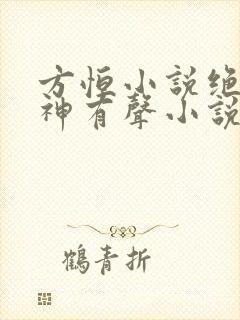 方恒小説绝
神有聲小説
鶴青折